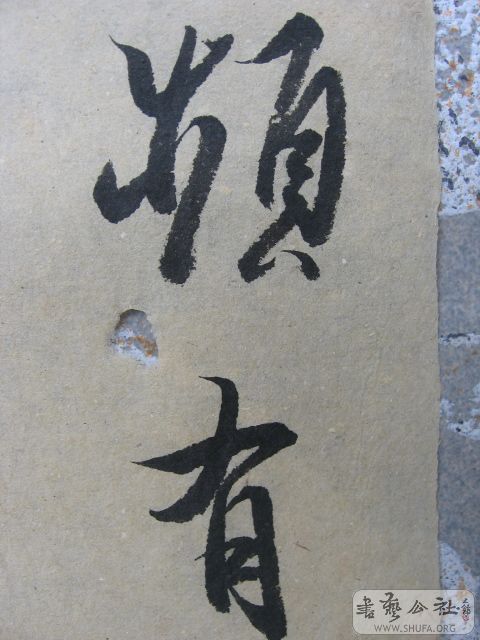 頻
有
書藝公社
WWW.SHUFA.ORG